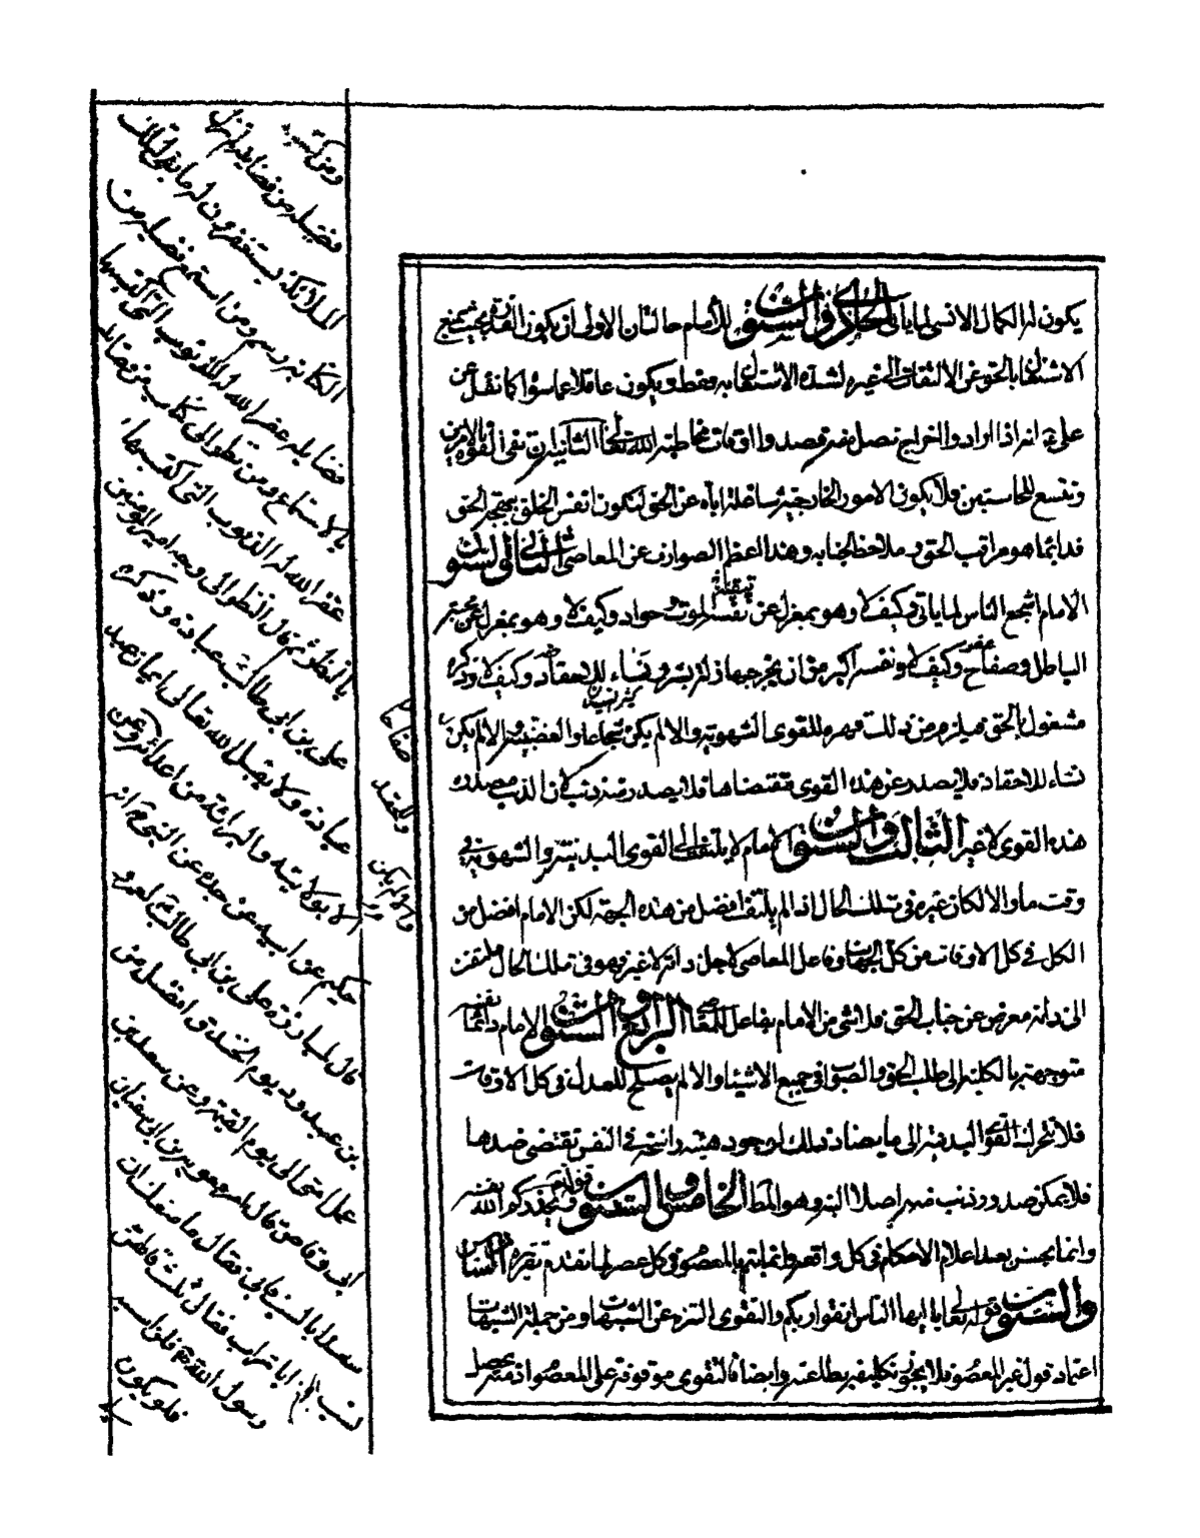 يكون له الكمال الانسى لما ياتى الحادى والستون للأمام حالتان الاولى ان يكون القدرة بحيث يمنع
الاشتغال بالحق عن الالتفات الى غيره لشدة الاشتغال به فقط ويكون غافلا عما سواه كما نقل عن
على انه اذا اراد والخراج نصل منه قصدوا اوقات مخاطبته الله تعالى الثانية ان تفى القوة بالامرين
وتتسع للجانبين فلا يكون الامور الخارجية شاغلة اياه عن الحق لتكون انفس الخلق الحق
فدائما هو مراقب الحق وملاحظ لجنابه وهذا اعظم الصوارف عن المعاصى الثانى والستون
الامام اشجع الناس لما ياتى وكيف لا وهو بمعزل عن تقية الموت وجواد وكيف لا وهو بمعزل عن محبة
الباطل وصفاح وكيف لا ونفسه اكبر من ان يخرجها زلة بشر ونساء للاحقاد وكيف لا وذكره
مشغول بالحق فيلزم من ذلك قهره للقوى الشهوية والا لم يكن شجاعا والغضبية والا لم يكن
نساء للاحقاد فلا يصدر عن هذه القوى مقتضاها فلا يصدر منه ذنب لان الذنب مصدره
هذه القوى لا غير الثالث والستون الامام لا يلتفت الى القوى البدنية والشهوية فى
وقت ما والا لكان غيره فى تلك الحال اذا لم يلتفت افضل من هذه الجهة لكن الامام افضل من
الكل فى كل الاوقات من كل الجهات وفاعل المعاصى لاجل ذاته لا غير فهو فى تلك الحال ملتفت
الى ذاته معرض عن جناب الحق فلا شئ من الامام بفاعل للمعاصى الرابع والستون الامام دائما نفسه
متوجهة بالكلية الى طلب الحق والصواب فى جميع الاشياء والا لم يصلح للعدل فى كل الاوقات
فلا تتحرك القوى البدنية الى ما يضاد ذلك لوجود هيئة راسخة فى النفس تقتضى ضدها
فلا يمكن صدور ذنب منه اصلا البتة وهو المط الخامس والستون قوله تعالى ويحذركم الله نفسه
وانما يحسن بعد اعلام الاحكام فى كل واقعة وانما يتم بالمعصوم فى كل عصر لما تقدم تقريره السادس
والستون قوله تعالى يا ايها الناس اتقوا ربكم والتقوى التنزه عن الشبهات ومن جملة الشبهات
اعتماد قول غير المعصوم فلا يجوز تكليفه بطاعته وايضا فالتقوى موقوفة على المعصوم اذ منه يحصل
صفاحا
وللحقد
والا لم يكن
ومن كتب
فضيلة من فضايله لم تزل
الملائكة يستغفرون له ما بقى لتلك
الكتابة رسم ومن استمع فضيلة من
فضايله غفر الله له الذنوب التى اكتسبها
بالاستماع ومن نظر الى كتاب من فضائله
غفر الله له الذنوب التى اكتسبها
بالنظر ثم قال النظر الى وجه امير المؤمنين
على بن ابى طالب عبادة وذكره
عبادة ولا يقبل الله تعالى ايمان عبد
الا بولايته والبرائة من اعدائه وعن
حكيم عن ابيه عن جده عن النبى انه
قال لمبارزة على بن ابى طالب لعمرو
بن عبد ود يوم الخندق افضل من
عمل امتى الى يوم القيمة وعن سعد بن
ابى وقاص قال امر معوية بن ابى سفيان
سعدا بالسب فابى فقال ما منعك ان
تسب ابا تراب فقال ثلث قالهن
رسول الله فلن اسبه
فلو يكون